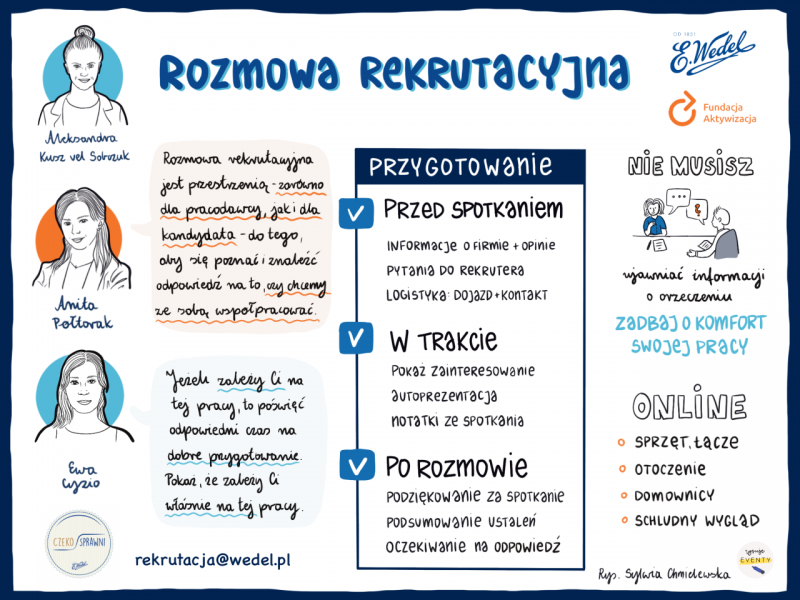 ROZMOWA REKRUTACYJNA
OD 1851
E. Wedel
Fundacja
Aktywizacja
Aleksandra
Kusz vel Sobczuk
Anita
Półtorak
Ewa
Cyzio
Rozmowa rekrutacyjna
jest przestrzenią - zarówno
dla pracodawcy, jak i dla
kandydata - do tego,
aby się poznać i znaleźć
odpowiedź na to, czy chcemy
ze sobą współpracować.
Jeżeli zależy Ci na
tej pracy, to poświęć
odpowiedni czas na
dobre przygotowanie.
Pokaż, że zależy Ci
właśnie na tej pracy.
PRZYGOTOWANIE
PRZED SPOTKANIEM
INFORMACJE O FIRMIE + OPINIE
PYTANIA DO REKRUTERA
LOGISTYKA: DOJAZD + KONTAKT
W TRAKCIE
POKAŻ ZAINTERESOWANIE
AUTOPREZENTACJA
NOTATKI ZE SPOTKANIA
PO ROZMOWIE
PODZIĘKOWANIE ZA SPOTKANIE
PODSUMOWANIE USTALEŃ
OCZEKIWANIE NA ODPOWIEDŹ
NIE MUSISZ
ujawniać informacji
o orzeczeniu
ZADBAJ O KOMFORT
SWOJEJ PRACY
ONLINE
SPRZĘT, ŁĄCZE
OTOCZENIE
DOMOWNICY
SCHLUDNY WYGLĄD
CZEKO/SPRAWNI
E. Wedel
rekrutacja@wedel.pl
Rys. Sylwia Chmielewska
rysuję
EVENTY